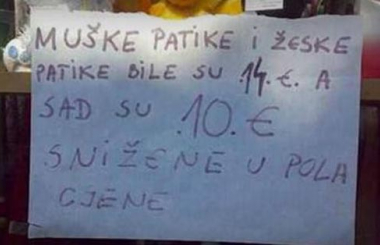 MUŠKE PATIKE i ŽESKE
PATIKE BILE SU 14.€. A
SAD SU 10.€
SNIŽENE U POLA
CJENE